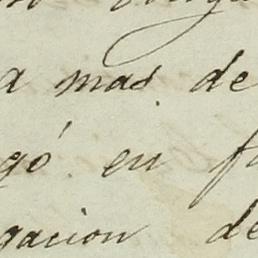 a mas de
gó en
gacion de